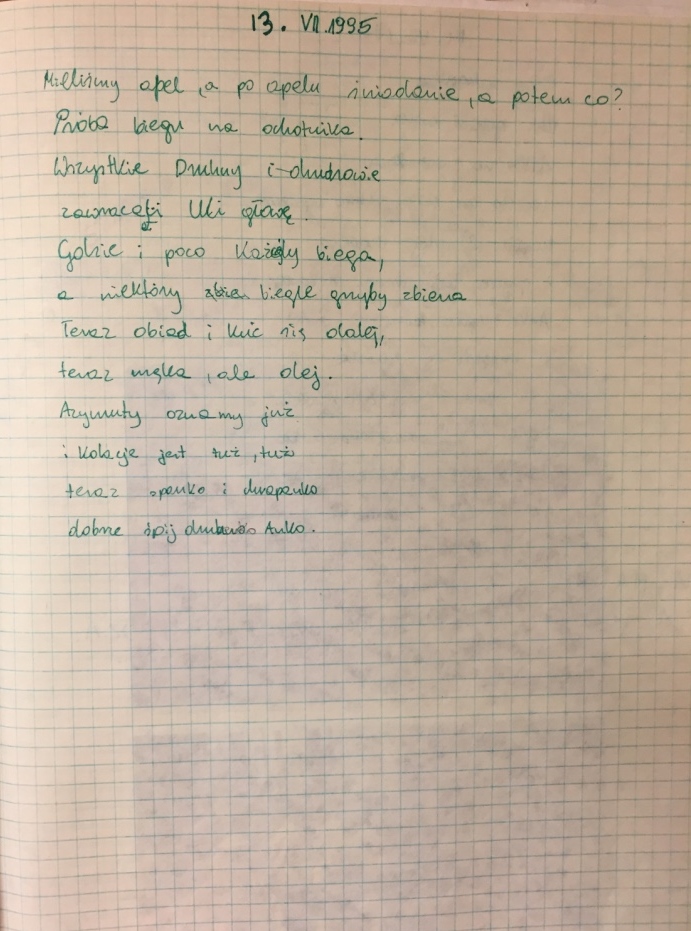 13. VII.1995
Mieliśmy apel, a po apelu śniadanie, a potem co?
Próba biegu na ochotnika.
Wszystkie Druhny i druhowie
zawracają Uli głowę.
Gdzie i poco Każdy biega,
a niektóry biegle grzyby zbiera
Teraz obiad i kuć się dalej,
teraz męka, ale olej.
Azymuty oznamy już
i Kolacje jest tuż, tuż
teraz spanko i chrapanko
dobrze śpij druhno Anko.